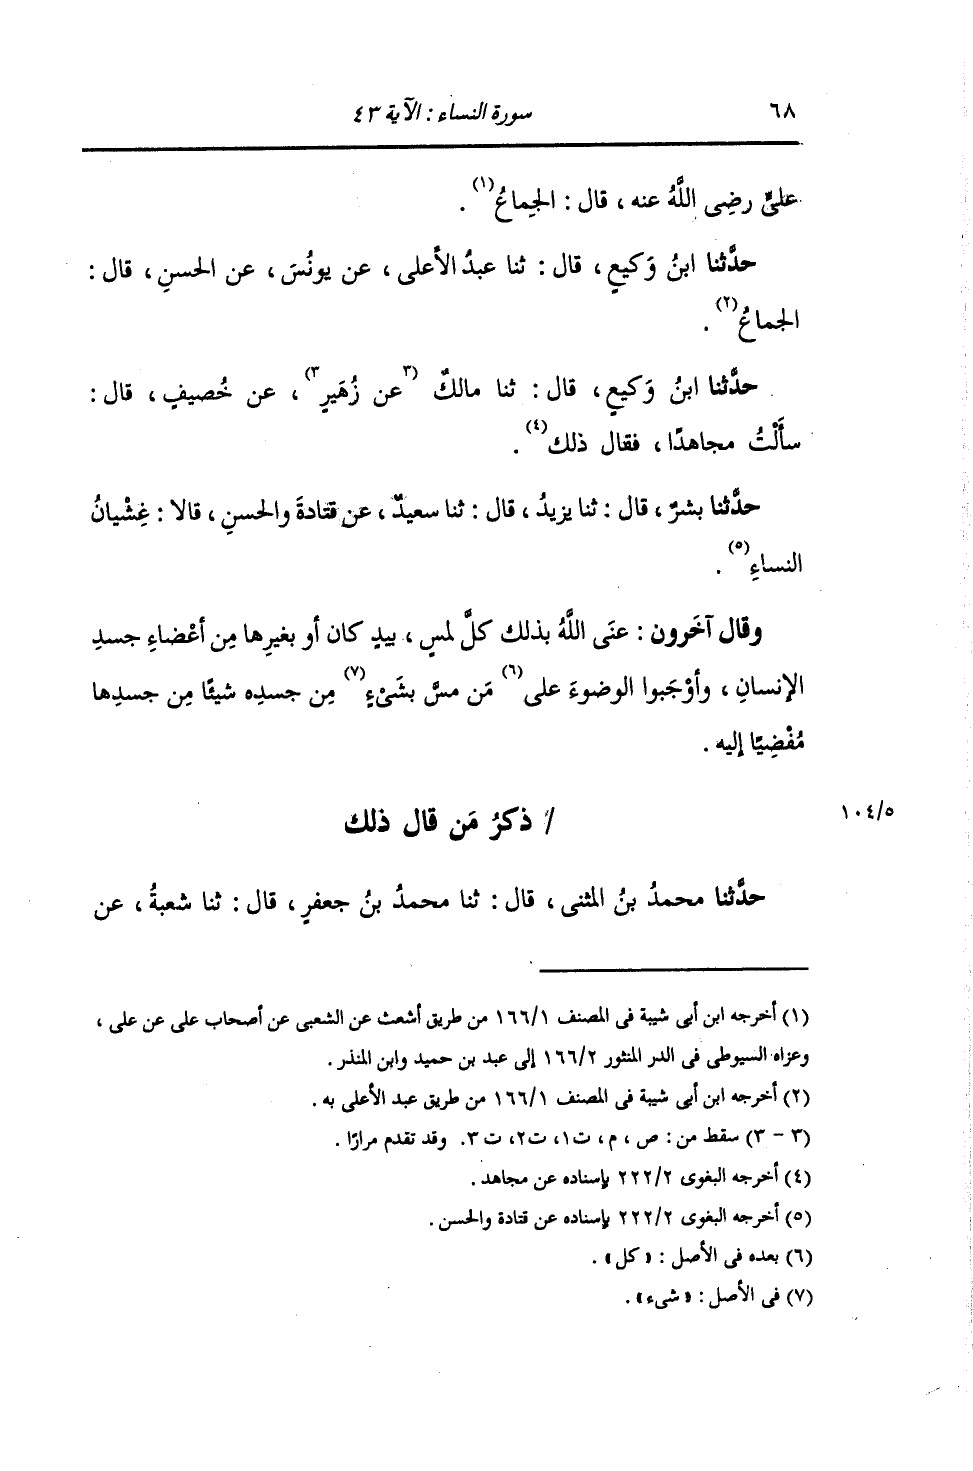 ٦٨ سورة النساء : الآية ٤٣
علىٍّ رضِى اللَّهُ عنه ، قال : الجِماعُ(١) .
حدَّثنا ابنُ وَكيعٍ ، قال : ثنا عبدُ الأعلى ، عن يونُسَ ، عن الحسنِ ، قال :
الجماعُ(٢) .
حدَّثنا ابنُ وَكيعٍ ، قال : ثنا مالكٌ (٣عن زُهَيرٍ٣) ، عن خُصيفٍ ، قال :
سأَلْتُ مجاهدًا ، فقال ذلك(٤) .
حدَّثنا بشرٌ ، قال : ثنا يزيدُ ، قال : ثنا سعيدٌ ، عن قتادةَ والحسنِ ، قالا : غِشْيانُ
النساءِ(٥) .
وقال آخَرون : عنَى اللَّهُ بذلك كلَّ لمسٍ ، بيدٍ كان أو بغيرِها مِن أعْضاءِ جسدِ
الإنسانِ ، وأوْجَبوا الوضوءَ على(٦) مَن مسَّ بشَىْءٍ(٧) مِن جسدِه شيئًا مِن جسدِها
مُفْضِيًا إليه .
١٠٤/٥ / ذكرُ مَن قال ذلك
حدَّثنا محمدُ بنُ المثنى ، قال : ثنا محمدُ بنُ جعفرٍ ، قال : ثنا شعبةُ ، عن
(١) أخرجه ابن أبى شيبة فى المصنف ١٦٦/١ من طريق أشعث عن الشعبى عن أصحاب على عن على ،
وعزاه السيوطى فى الدر المنثور ١٦٦/٢ إلى عبد بن حميد وابن المنذر .
(٢) أخرجه ابن أبى شيبة فى المصنف ١٦٦/١ من طريق عبد الأعلى به .
(٣ - ٣) سقط من : ص ، م ، ت١، ت٢، ت٣. وقد تقدم مرارًا .
(٤) أخرجه البغوى ٢٢٢/٢ بإسناده عن مجاهد .
(٥) أخرجه البغوى ٢٢٢/٢ بإسناده عن قتادة والحسن .
(٦) بعده فى الأصل : « كل » .
(٧) فى الأصل : « شىء » .